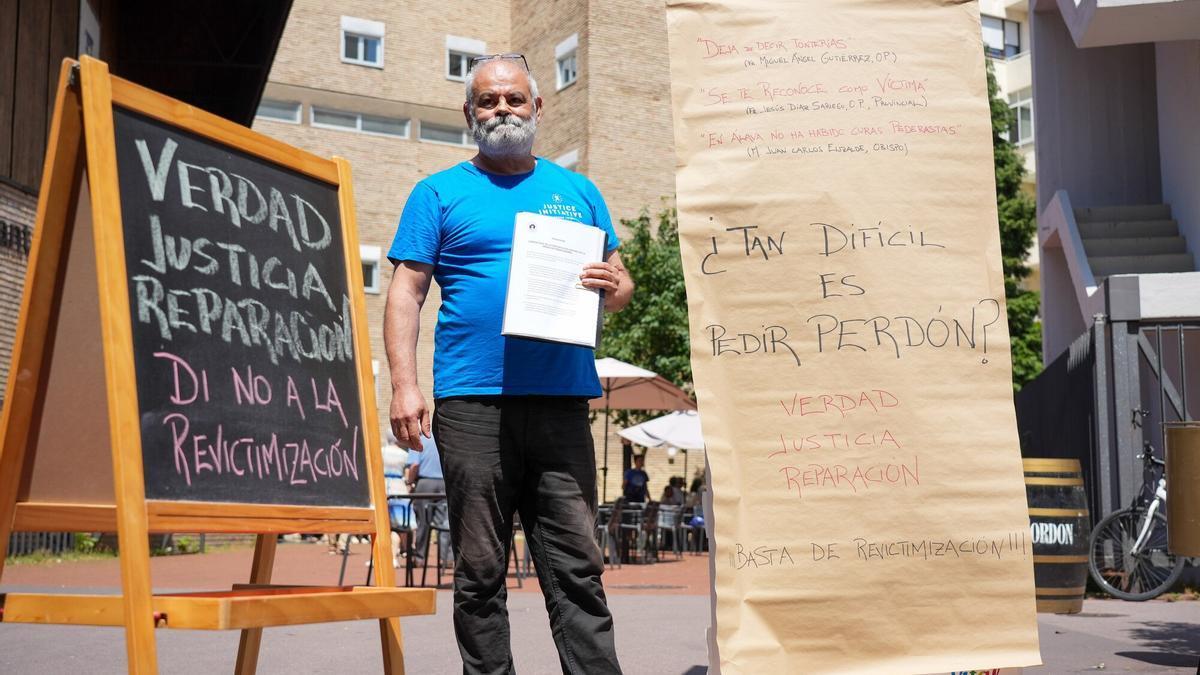 VERDAD
JUSTICIA
REPARACIÓN
DI NO A LA
REVICTIMIZACIÓN
JUSTICE
INITIATIVE
"DEJA DE DECIR TONTERÍAS"
MIGUEL ÁNGEL GUTIÉRREZ, O.P.)
"SE TE RECONOCE COMO VÍCTIMA"
JESÚS DÍAZ SARIEGO, O.P., PROVINCIAL)
"EN ALAVA NO HA HABIDO CURAS PEDERASTAS"
JUAN CARLOS ELIZALDE, OBISPO)
¿TAN DIFÍCIL
ES
PEDIR PERDÓN?
VERDAD
JUSTICIA
REPARACIÓN
¡¡¡BASTA DE REVICTIMIZACIÓN!!!
ORDON